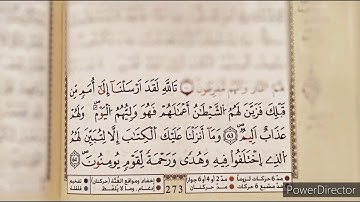 لهم النار وأنهم مفرطون تَاللَّهِ لَقَدْ أَرْسَلْنَا إِلَىٰ أُمَمٍ مِّن
قَبْلِكَ فَزَيَّنَ لَهُمُ الشَّيْطَٰنُ أَعْمَٰلَهُمْ فَهُوَ وَلِيُّهُمُ الْيَوْمَ وَلَهُمْ
عَذَابٌ أَلِيمٌ ٦٣ وَمَا أَنزَلْنَا عَلَيْكَ الْكِتَٰبَ إِلَّا لِتُبَيِّنَ لَهُمُ
الَّذِي اخْتَلَفُوا فِيهِ وَهُدًى وَرَحْمَةً لِّقَوْمٍ يُؤْمِنُونَ ٦٤
273
PowerDirector